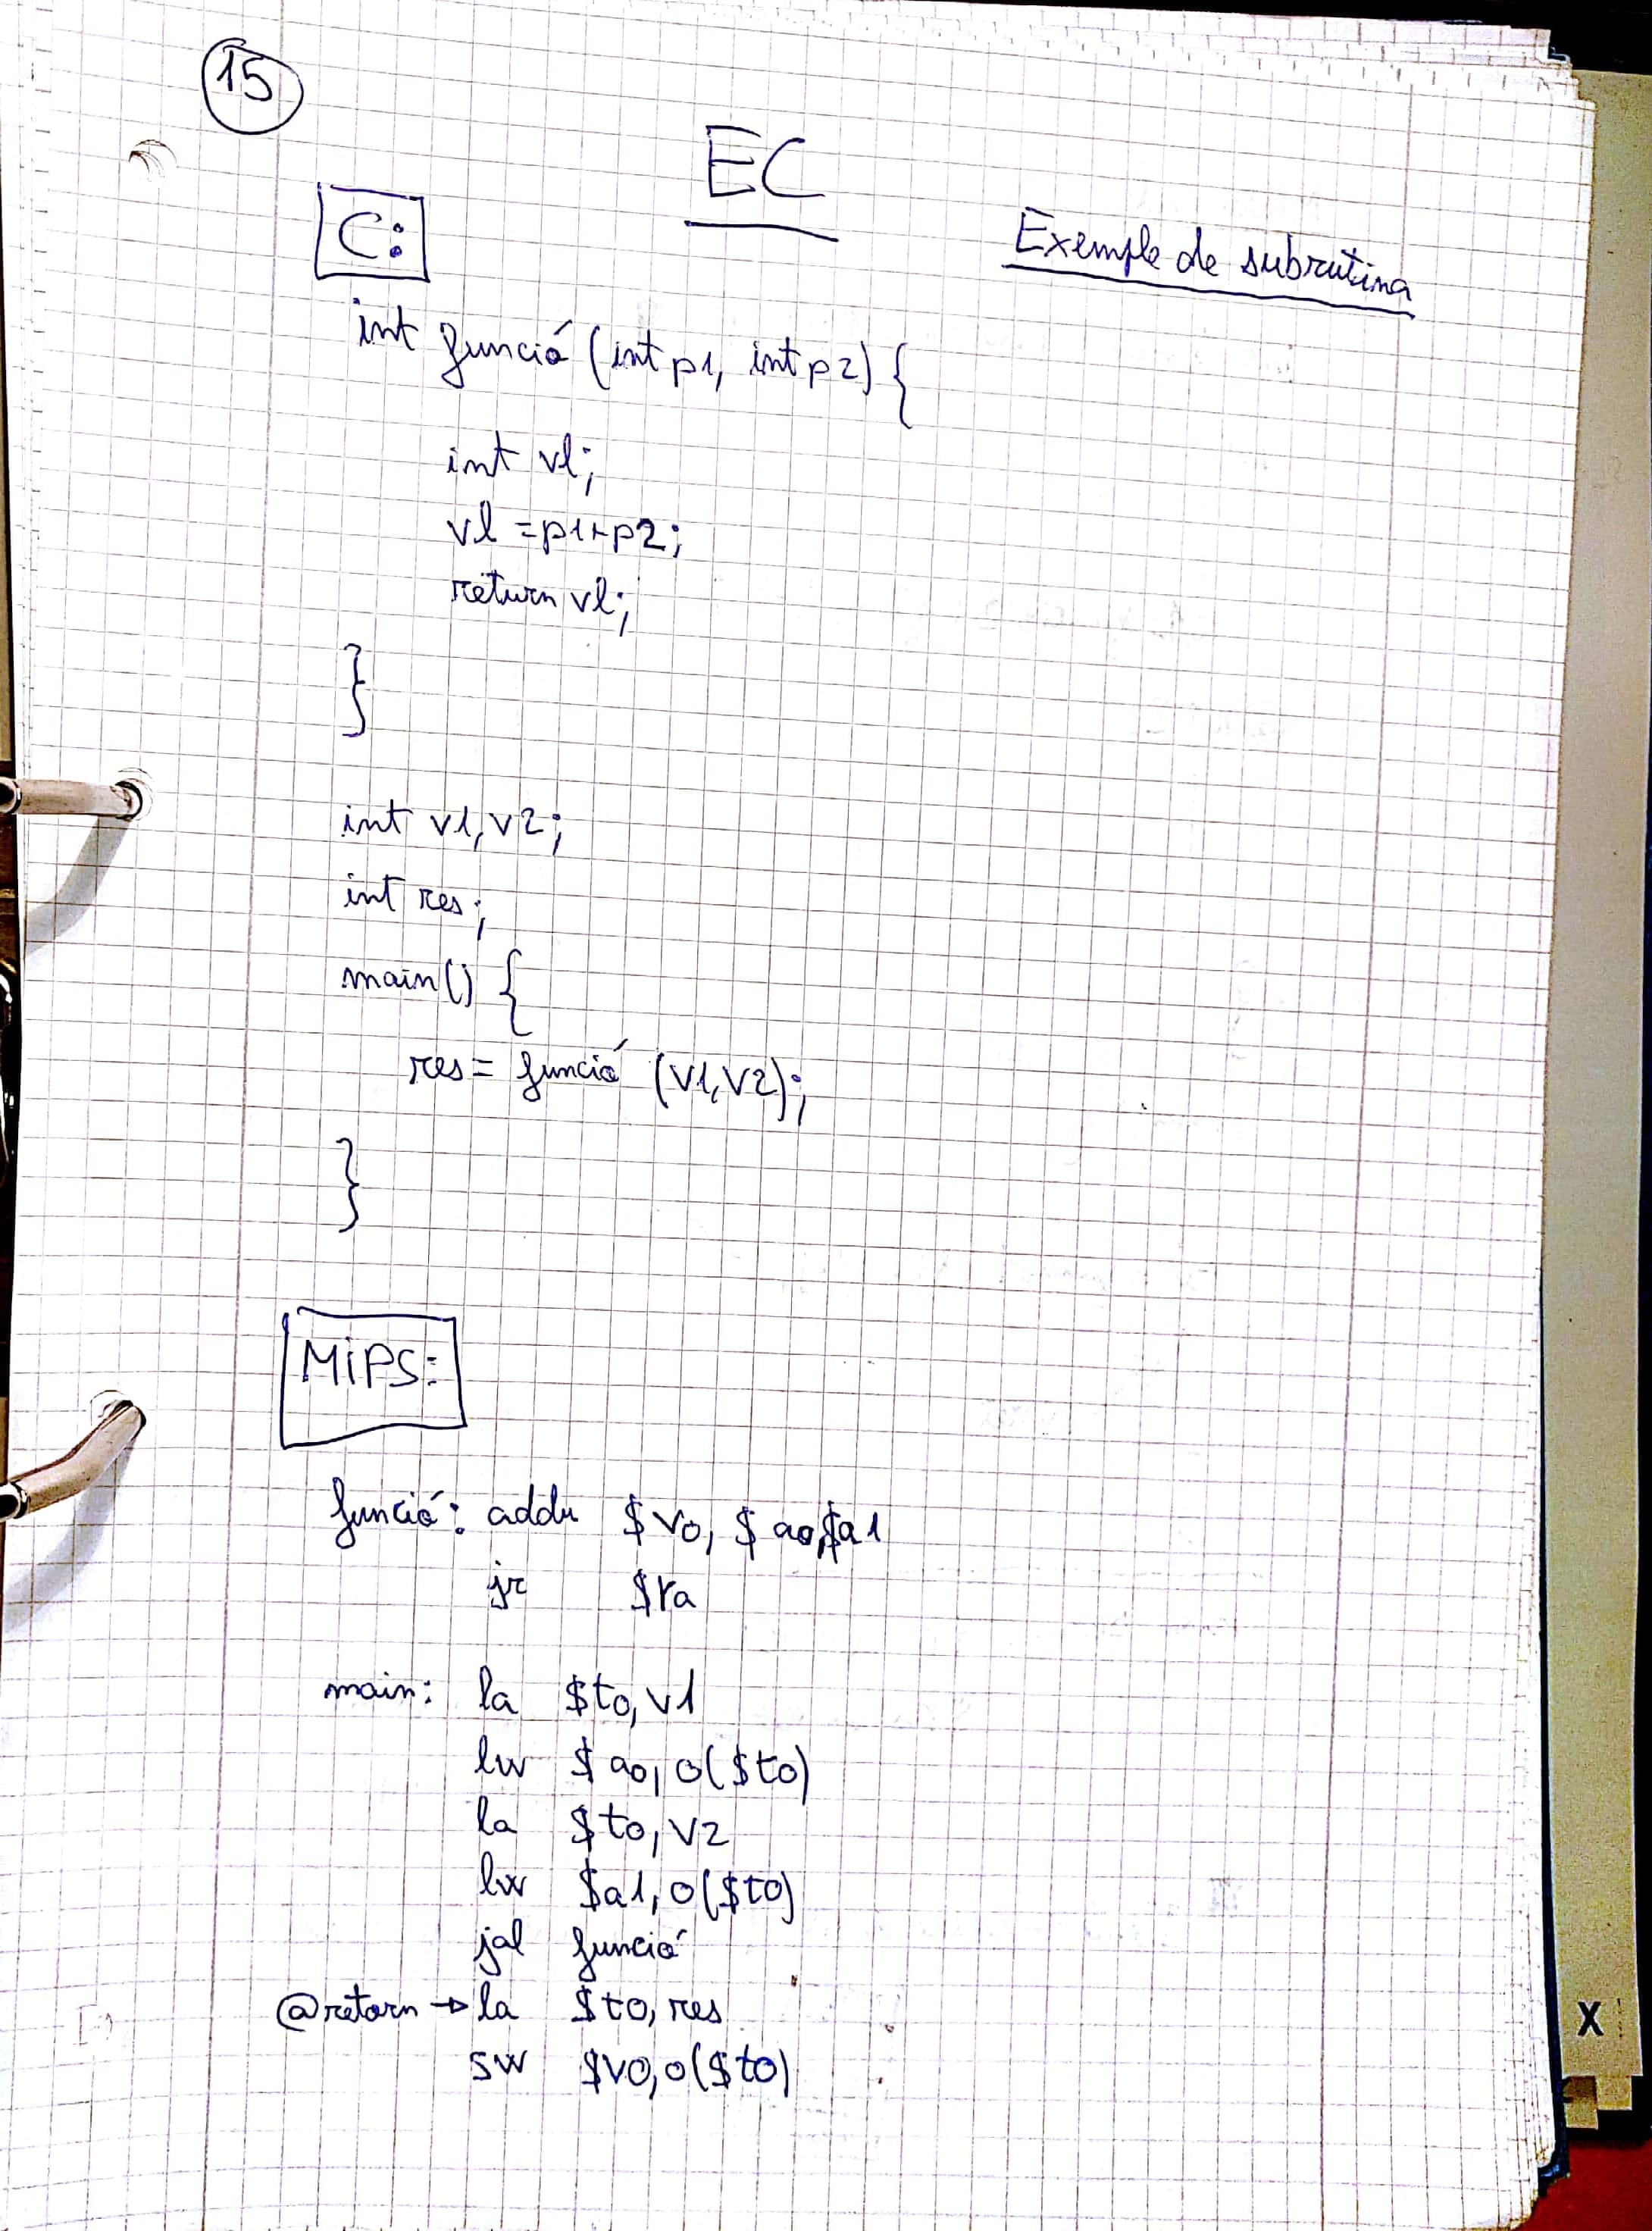 15
EC
C:
Exemple de subrutina
int funció (int p1, int p2) {
int vl;
vl = p1+p2;
return vl;
}
int v1, v2;
int res;
main() {
res = funció (v1, v2);
}
MIPS:
funció: addu $v0, $a0, $a1
jr $ra
main: la $t0, v1
lw $a0, 0($t0)
la $t0, v2
lw $a1, 0($t0)
jal funció
@retorn → la $t0, res
sw $v0, 0($t0)
X